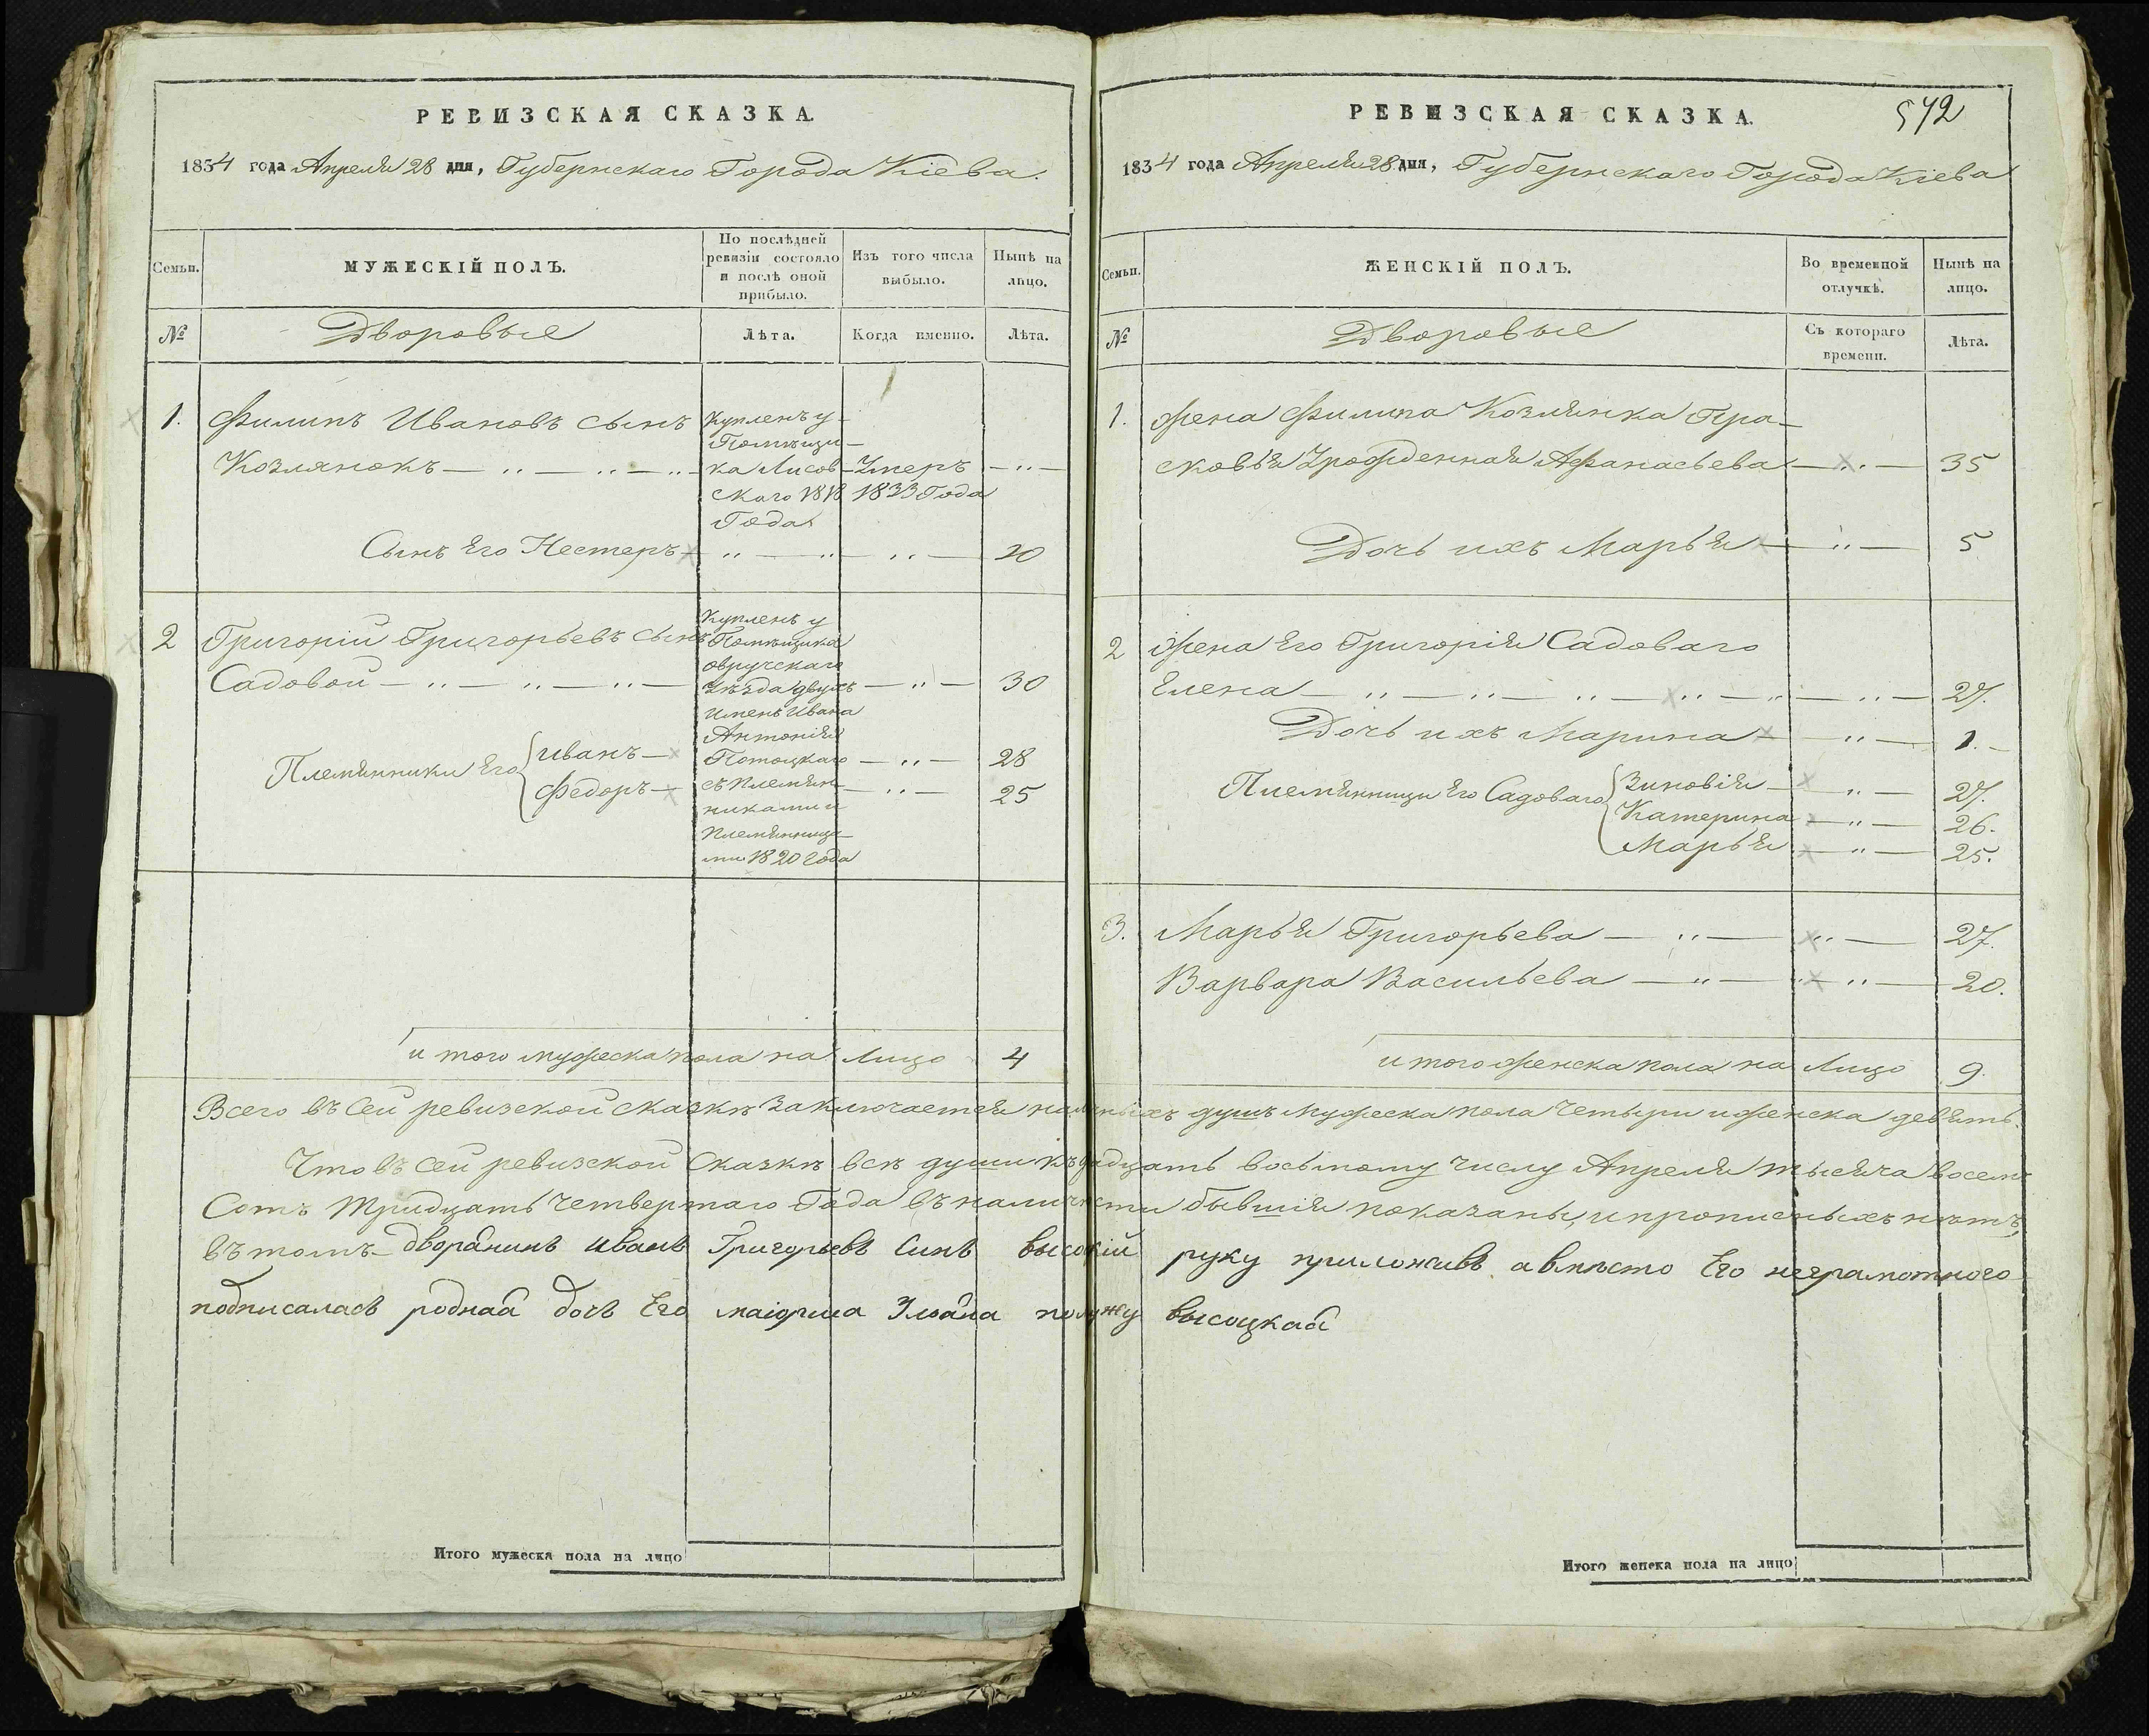 РЕВИЗСКАЯ СКАЗКА.
1834 года Апреля 28 дня, Губернскаго Города Кіева.
Семьи.
МУЖЕСКІЙ ПОЛЪ.
По послѣдней
ревизіи состояло
и послѣ оной
прибыло.
Изъ того числа
выбыло.
Нынѣ на
лицо.
№
Дворовые
Лѣта.
Когда именно.
Лѣта.
1. Филипъ Ивановъ сынъ
Козлянокъ — „ — „ — „
Купленъ у
Помѣщи-
ка Лисов-
скаго 1818
Года
Умеръ
1833 Года
— „ —
Сынъ Его Нестеръ — „ — „ — „ — 20
2 Григорій Григорьевъ сынъ
Садовой — „ — „ — „ —
Купленъ у
Помѣщика
овручскаго
Уѣзда двухъ
именъ Ивана
Антонія
Потоцкаго
съ Племян-
никами и
Племянница-
ми 1820 года
— „ — 30
Племянники Его { Иванъ — — „ — 28
Федоръ — — „ — 25
и того мужеска пола на Лицо 4
РЕВИЗСКАЯ СКАЗКА.
542
1834 года Апреля 28 дня, Губернскаго Города Кіева
Семьи.
ЖЕНСКІЙ ПОЛЪ.
Во временной
отлучкѣ.
Нынѣ на
лицо.
№
Дворовые
Съ котораго
времени.
Лѣта.
1. Жена Филипа Козлянка Пра-
сковья Урожденная Афанасьева — „ — 35
Дочь ихъ Марья — „ — 5
2 Жена Его Григорія Садоваго
Елена — „ — „ — „ — „ — „ — „ — 27.
Дочь ихъ Марина — „ — 1.
Племянницы Его Садоваго { Зиновія — „ — 27.
Катерина — „ — 26.
Марья — „ — 25.
3. Марья Григорьева — „ — „ — 27.
Варвара Васильева — „ — „ „ — 20.
и того женска пола на Лицо 9.
Всего въ Сей ревизской сказкѣ Заключается наличныхъ душъ Мужеска пола Четыри и женска девять.
Что въ сей ревизской Сказкѣ всѣ души къ двадцать восьмому числу Апреля тысяча восемь
Сотъ Тридцать Четвертаго Года въ наличности бывшія показаны, и прописныхъ нѣтъ,
въ томъ дворанинъ иванъ Григорьевъ Синъ высокій руку приложивъ а вмѣсто Его неграмотного
подписалась родная дочь Его маіорша по мужу высоцкая
Итого мужеска пола на лицо
Итого женска пола на лицо